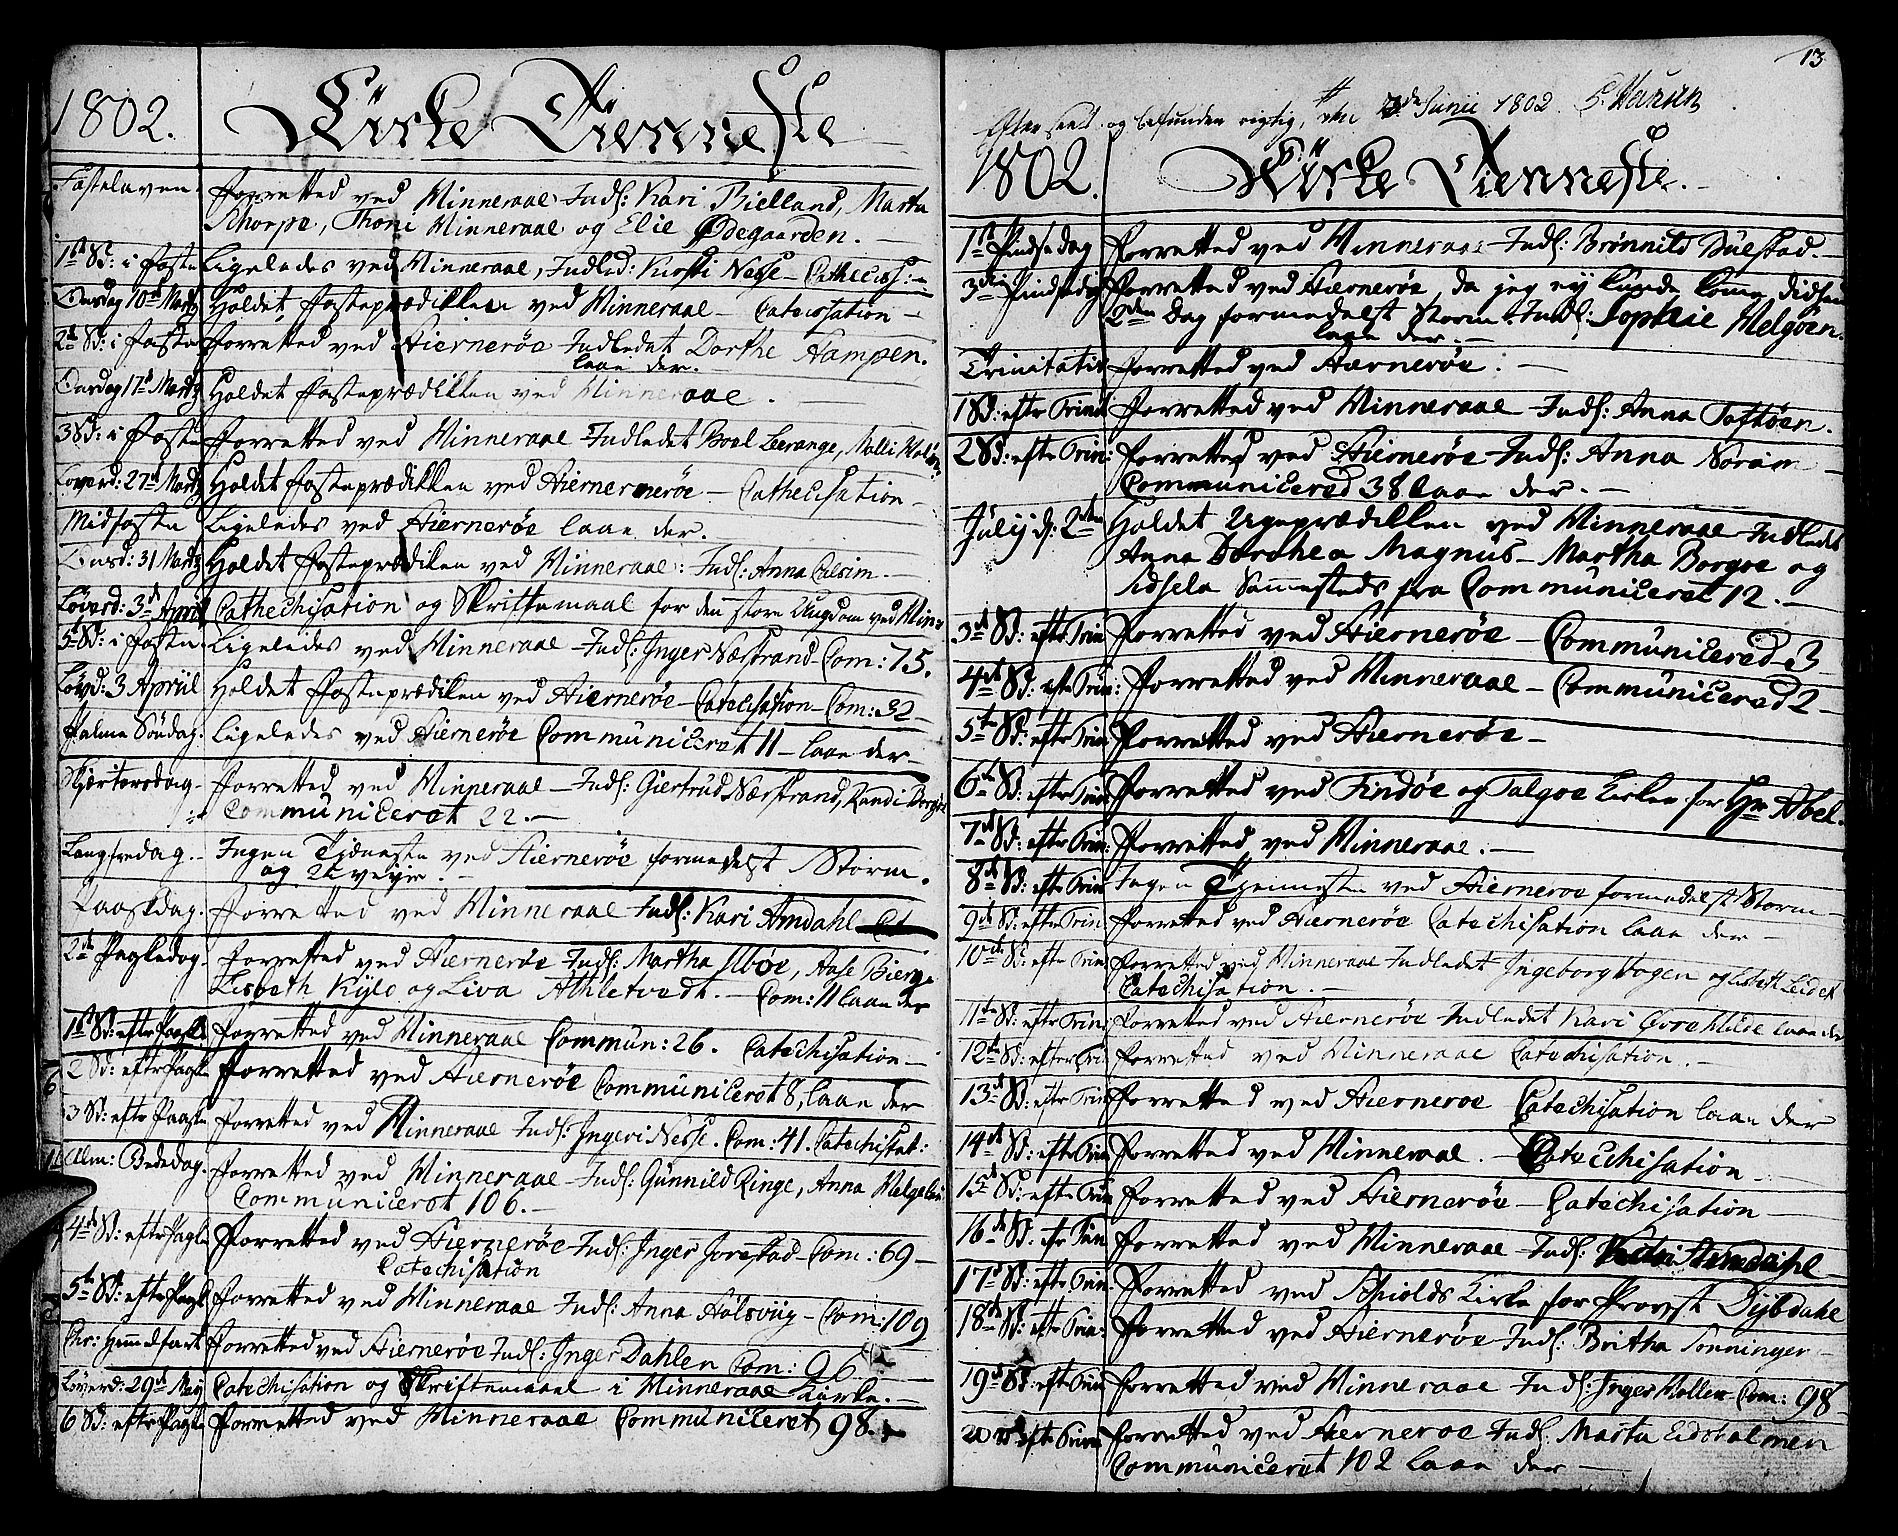 1802.
Kirke Tienneste
Fastelaven. Forretted ved Hinneraae Indl: Kari Bielland, Marta
Thorpe, Thoni Hinneraae og Elie Ødegaarden. —
1st Sd: i Faste Ligeledes ved Hinneraae, Indled: Kirsti Nesse — Cathecis:
Onsdag 10d Martz Holdet Fasteprædikken ved Hinneraae — Catecisation —
2d Sd: i Faste Forretted ved Hiernerøe Indledet Dorthe Hampen.
laae der. —
Onsdag 17d Martz Holdet Fasteprædikken ved Hinneraae. —
3 Sd: i Faste Forretted ved Hinneraae Indledet Boel Leerange, Malli
Løverd: 27d Martz Holdet Fasteprædikken ved Hiernerøe — Cathecisation —
Midfaste Ligeledes ved Hiernerøe laae der. —
Onsd: 31 Martz Holdet Fasteprædiken ved Hinneraae: Indl: Anna
Løverd: 3d April Cathechisation og Skriftemaal for den store Ungdom ved Hin:
5 Sd: i Faste Ligeledes ved Hinneraae — Indl: Inger Næstrand — Com: 75.
Løvd: 3 Apriil Holdet Fasteprædiken ved Hiernerøe — Catecisation — Com: 32 —
Palme Søndag. Ligeledes ved Hiernerøe Communiceret 11 — laae der —
Skjærtorsdag — Forretted ved Hinneraae — Indl: Giertrud Nærstrand, Randi
Communiceret 22. —
Langfredag. — Ingen Tjeneste ved Hiernerøe formedelst Storm.
og
Paaskdag. Forretted ved Hinneraae Indl: Kari Amdahl
2de Paaskedag. Forretted ved Hiernerøe Indl: Martha Ilbøe, Aase Bierge
Lisbeth Kylo og Liva Athletvedt. — Com: 11 laae der
1st Sd: efter Paaske Forretted ved Hinneraae Commun: 26. Catechisation —
2 Sd: efter Paaske Forretted ved Hiernerøe Communiceret 8, laae der
3 Sd: efter Paaske Forretted ved Hinneraae Indl: Ingeri Nesse. Com: 41. Catechisat:
Alm: Bededag. Forretted ved Hinneraae — Indl: Gunnild Ringe, Anna
Communiceret 106. —
4de Sd: efter Paaske Forretted ved Hiernerøe Indl: Inger Jorestad — Com: 69 —
Catechisation
5te Sd: efter Paaske Forretted ved Hinneraae Indl: Anna Halsviig — Com: 109
Chr: Himmelfart Forretted ved Hiernerøe Indl: Inger Dahlen Com: 96
Løverd: 29d May Catechisation og Skriftemaal i Hinneraae Kirke. —
6 Sd: efter Paaske Forretted ved Hinneraae Communiceret 98. —
13
Efterseet og befunden rigtig, den Junii 1802.
1802. Kirke Tienneste. —
1st Pindsedag Forretted ved Hinneraae Indl: Brønnild Dulstad. —
3die Pindsedag Forretted ved Hiernerøe, da jeg ey kunde komme didhen
2den Dag formedelst Storm. Indl: Sophie Helgøen.
laae der. —
Trinitatis Forretted ved Hiernerøe. —
1 Sd: efter Trind Forretted ved Hinneraae Indl: Anna Toftøen.
2 Sd: efter Trin: Forretted ved Hiernerøe — Indl: Anna Norim —
Communicered 38 laae der. —
Julij d: 2den Holdet Ugeprædikken ved Hinneraae — Indledet
Anna Dorthea Magnus — Martha Borgøe og
Idsela Sammesteds fra Communiceret 12. —
3d Sd: efter Trin Forretted ved Hiernerøe — Communicered 3
4d Sd: efter Trin: Forretted ved Hinneraae — Communicered 2 —
5te Sd: efter Trin Forretted ved Hiernerøe —
6te Sd: efter Trin Forretted ved Findøe og Talgøe Kirker for Hr Abel.
7d Sd: efter Trin: Forretted ved Hinneraae. —
8d Sd: efter Trin Ingen Tjenneste ved Hierneroe formedelst Storm —
9d Sd: efter Trin Forretted ved Hiernerøe Catechisation laae der —
10de Sd: efter Trin Forretted ved Hinneraae Indledet Ingeborg Hogen og Lisbeth
Catechisation. —
11te Sd: efter Trin: Forretted ved Hiernerøe Indledet Kari Øvrehilde laae der
12te Sd: efter Tri: Forretted ved Hinneraae Catechisation. —
13d Sd: efter Trin Forretted ved Hierneroe Catechisation laae der
14d Sd: efter Trin Forretted ved Hinneraae. — Catecchisation —
15d Sd: efter Trin Forretted ved Hiernerøe — Catechisation —
16de Sd: efter Trin Forretted ved Hinneraae — Indl:
17d Sd: efter Trin: Forretted ved Skiolds Kirke for Provst Dybdahl
18de Sd: efter Trin: Forretted ved Hiernerøe Indl: Britha Sonninger —
19d Sd: efter Trin Forretted ved Hinneraae Indl: Inger Hollen — Com: 98
20 Sd: efter Trin Forretted ved Hierneroe Indl: Marta Eidshalmen
Communiceret 102 laae der —